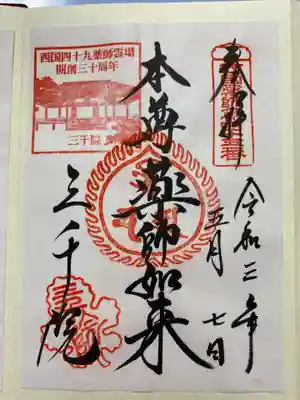 奉拝
令和三年
五月
七日
本尊 薬師如来
三千院
西国四十九薬師霊場
開創三十周年
三千院